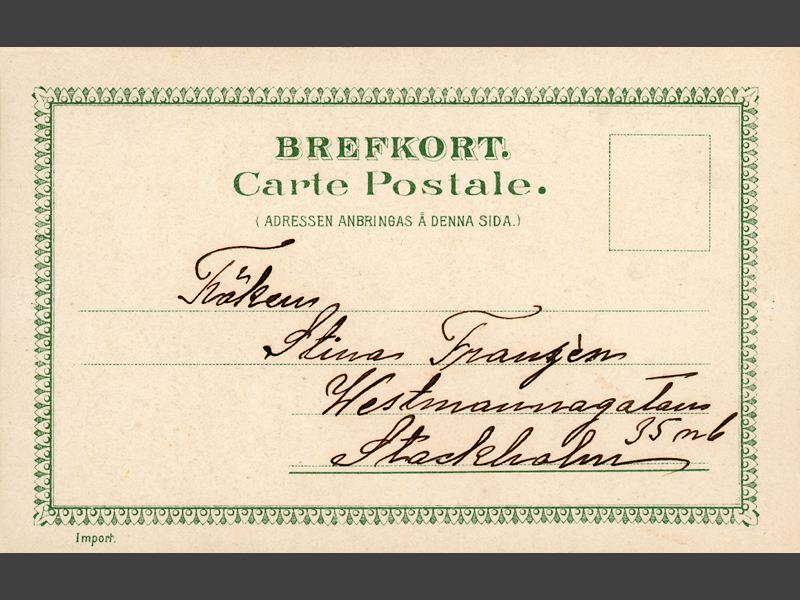 BREFKORT.
Carte Postale.
(ADRESSEN ANBRINGAS Å DENNA SIDA.)
Fröken
Stina Franzén
Westmannagatan
35 nb
Stockholm
Import.